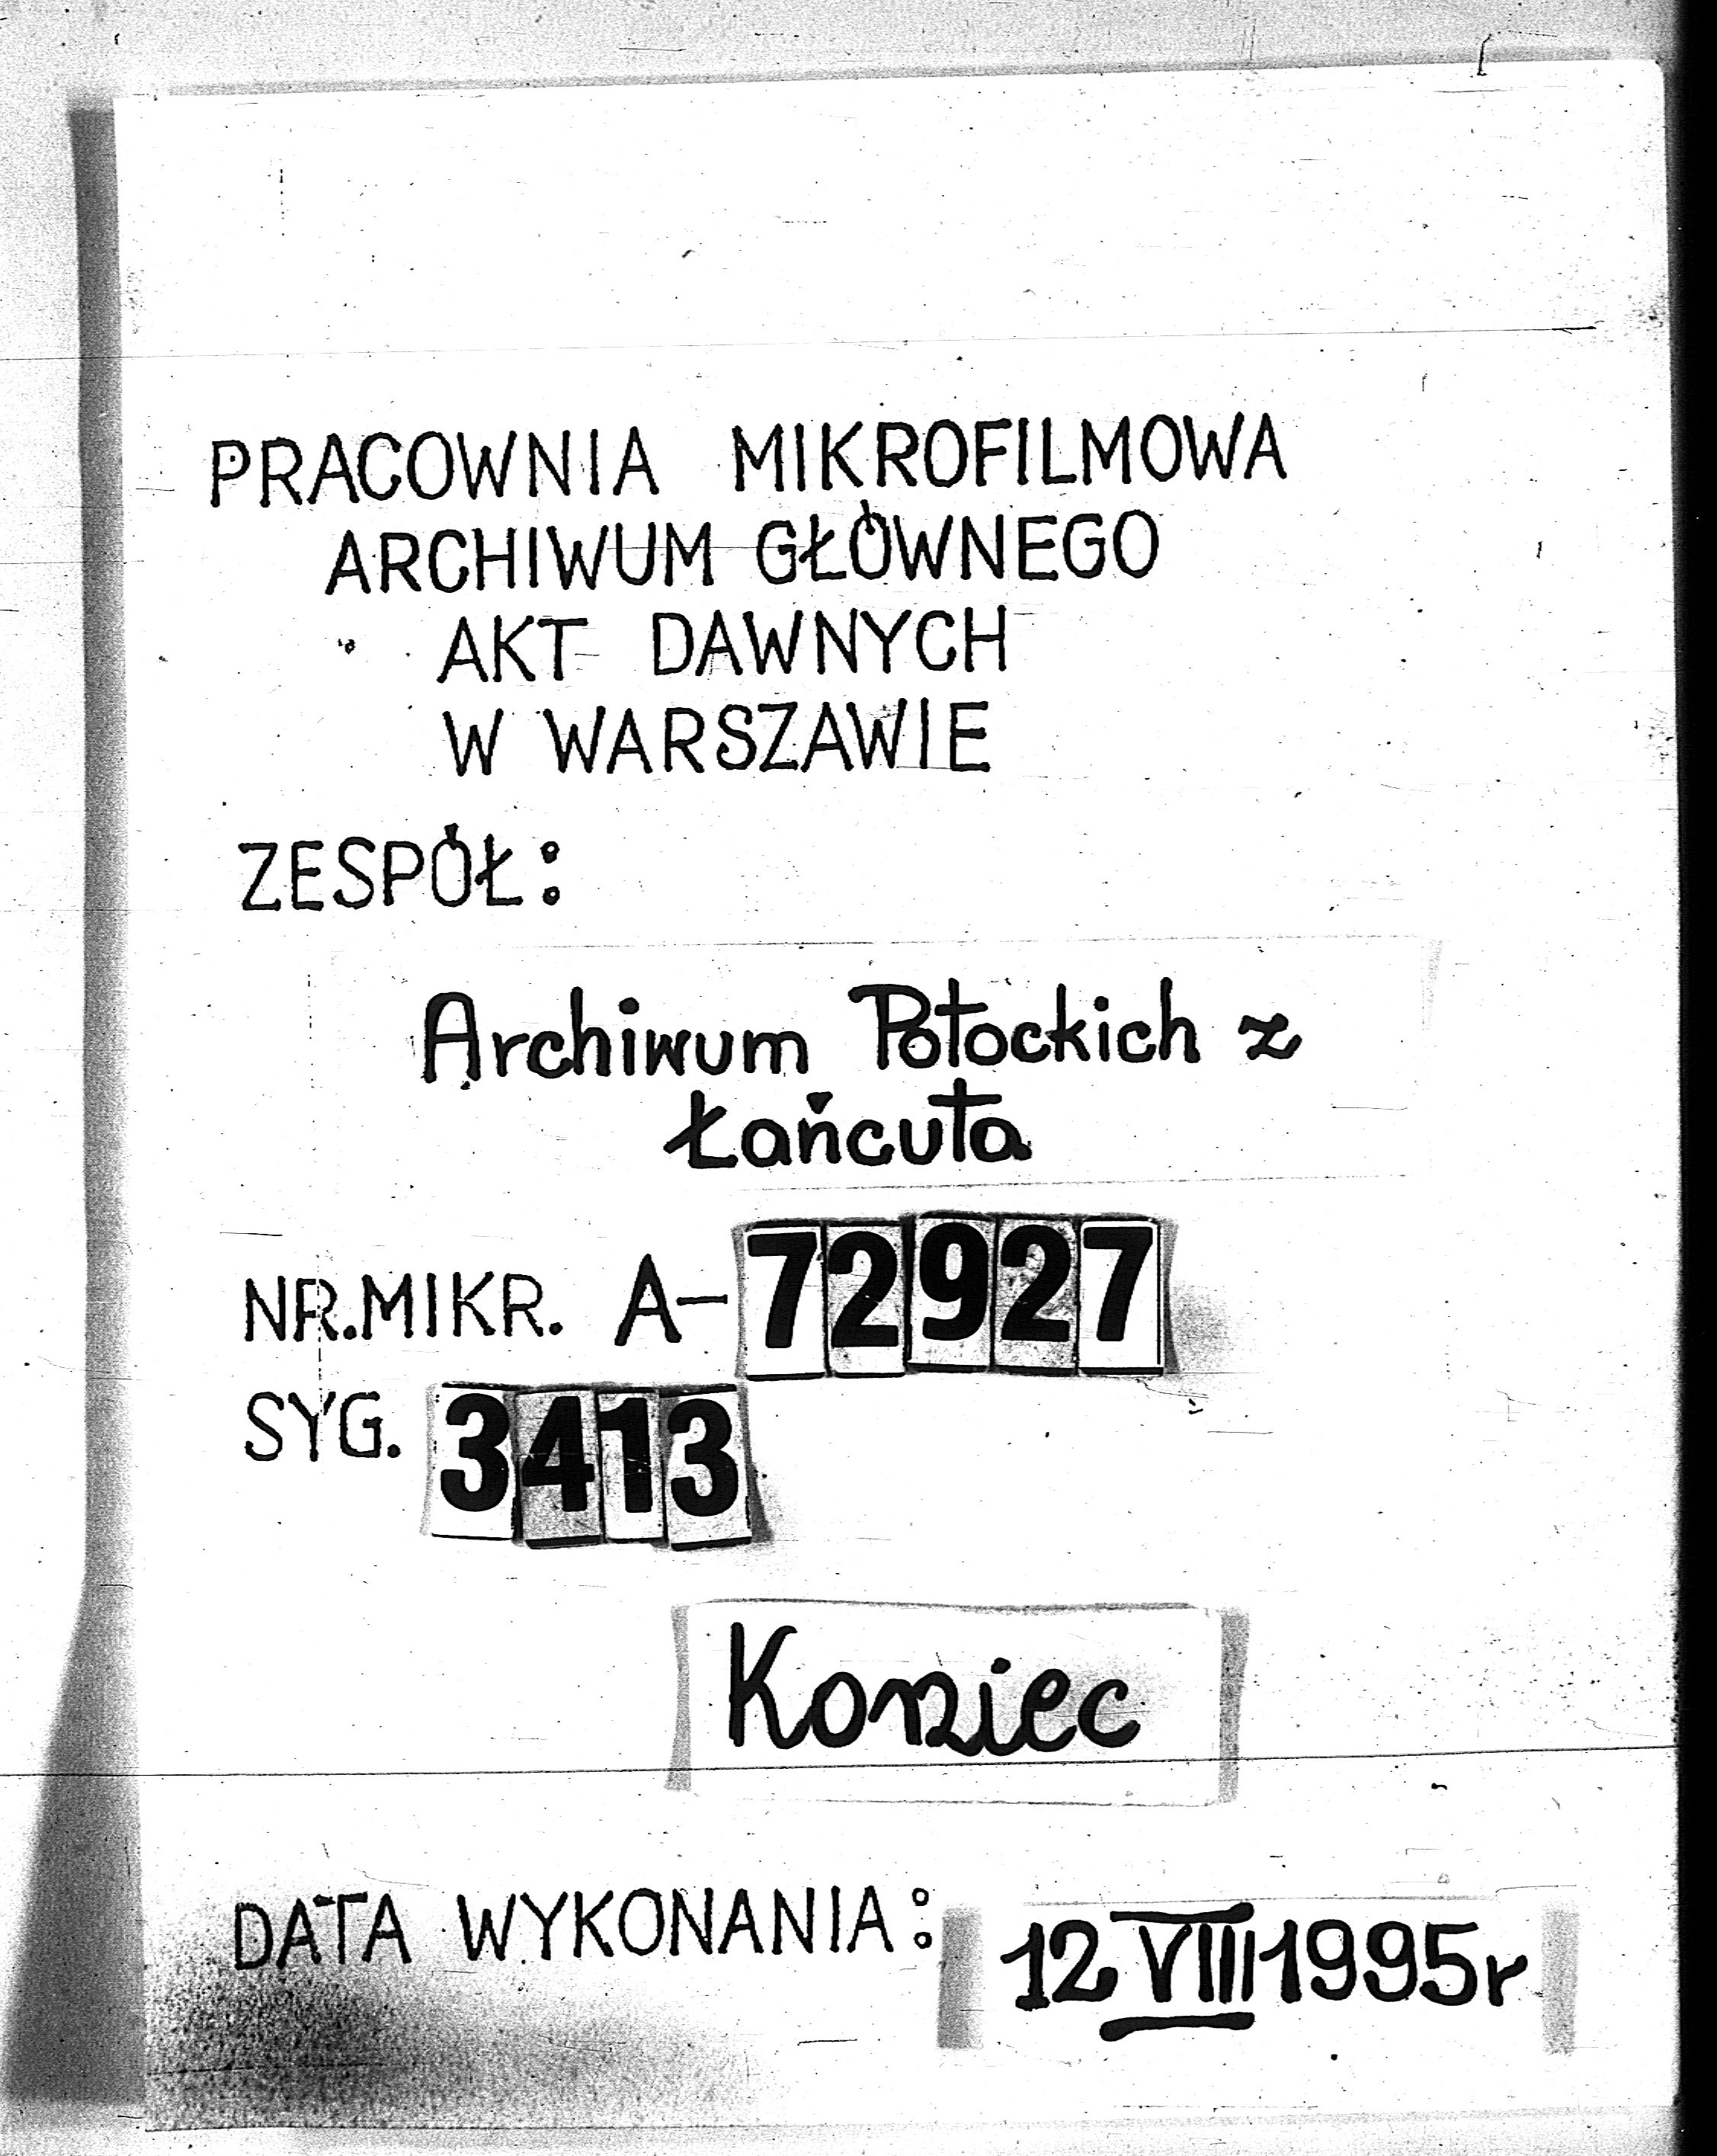 PRACOWNIA MIKROFILMOWA
ARCHIWUM GŁÓWNEGO
AKT DAWNYCH
W WARSZAWIE
ZESPÓŁ:
Archiwum Potockich z
Łańcuta
NR.MIKR. A-72927
SYG. 3413
Koniec
DATA WYKONANIA: 12 VIII 1995r